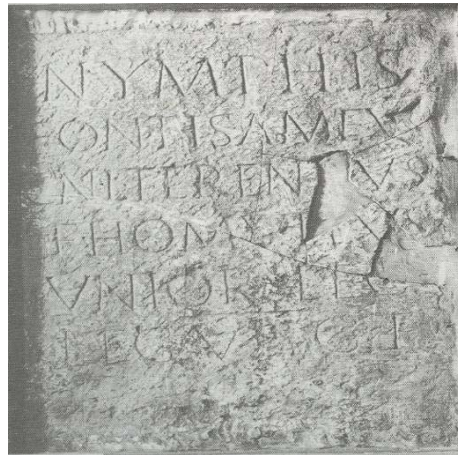 NYMPHIS
ONTIS AMEV
NI TERENTIVS
F HOMVLLVS
VNIOR LEG
LEG